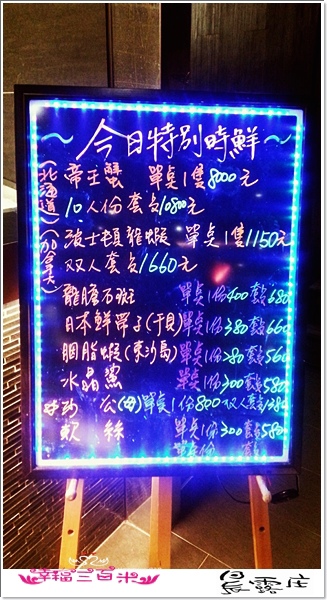 ~今日特別時鮮~
(北海道) 帝王蟹 單點1隻8000元
10人份套餐10800元
(加拿大) 波士頓龍蝦 單點1隻1150元
双人套餐1660元
龍膽石斑 單點1份400套餐680
日本鮮翠子(干貝)單點1份380套餐660
胭脂蝦(東沙島) 單點1份280套餐560
水晶鯊 單點1份300套餐580
公(母)單點1份800双人套餐1380
軟絲 單點1份300套餐580
單點1份 套餐
幸福三百米
晨露庄